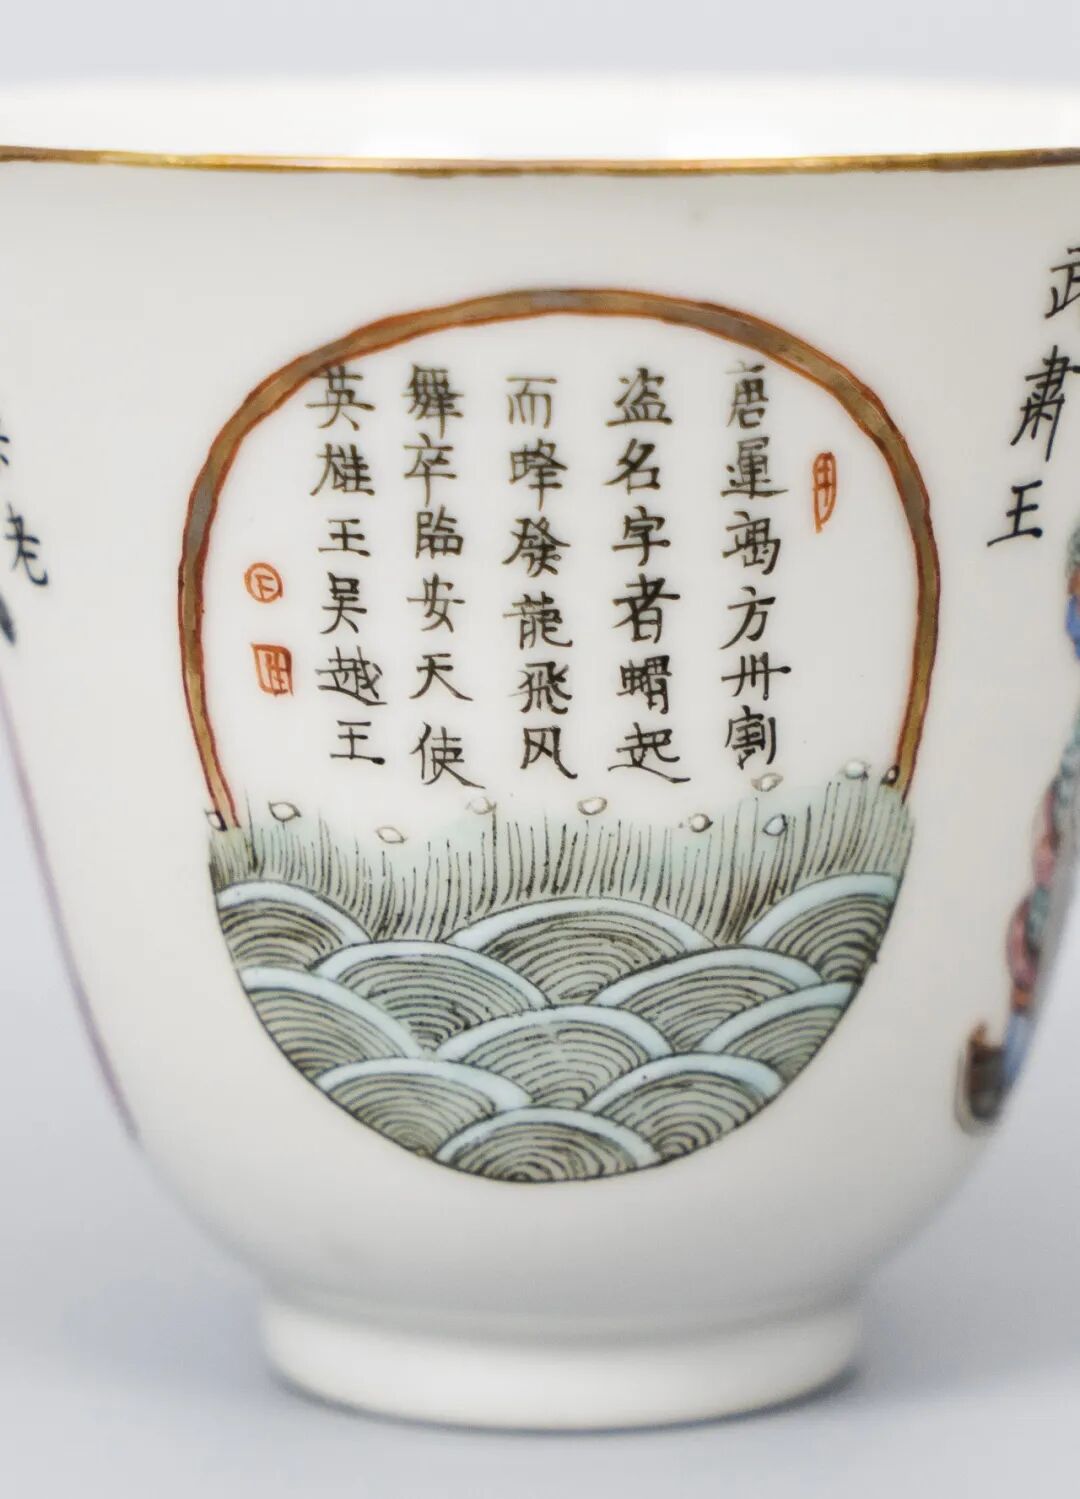 武肅王
唐運竭方州割
盗名字者蝟起
而蜂發龍飛风
舞卒臨安天使
英雄王吴越王
老